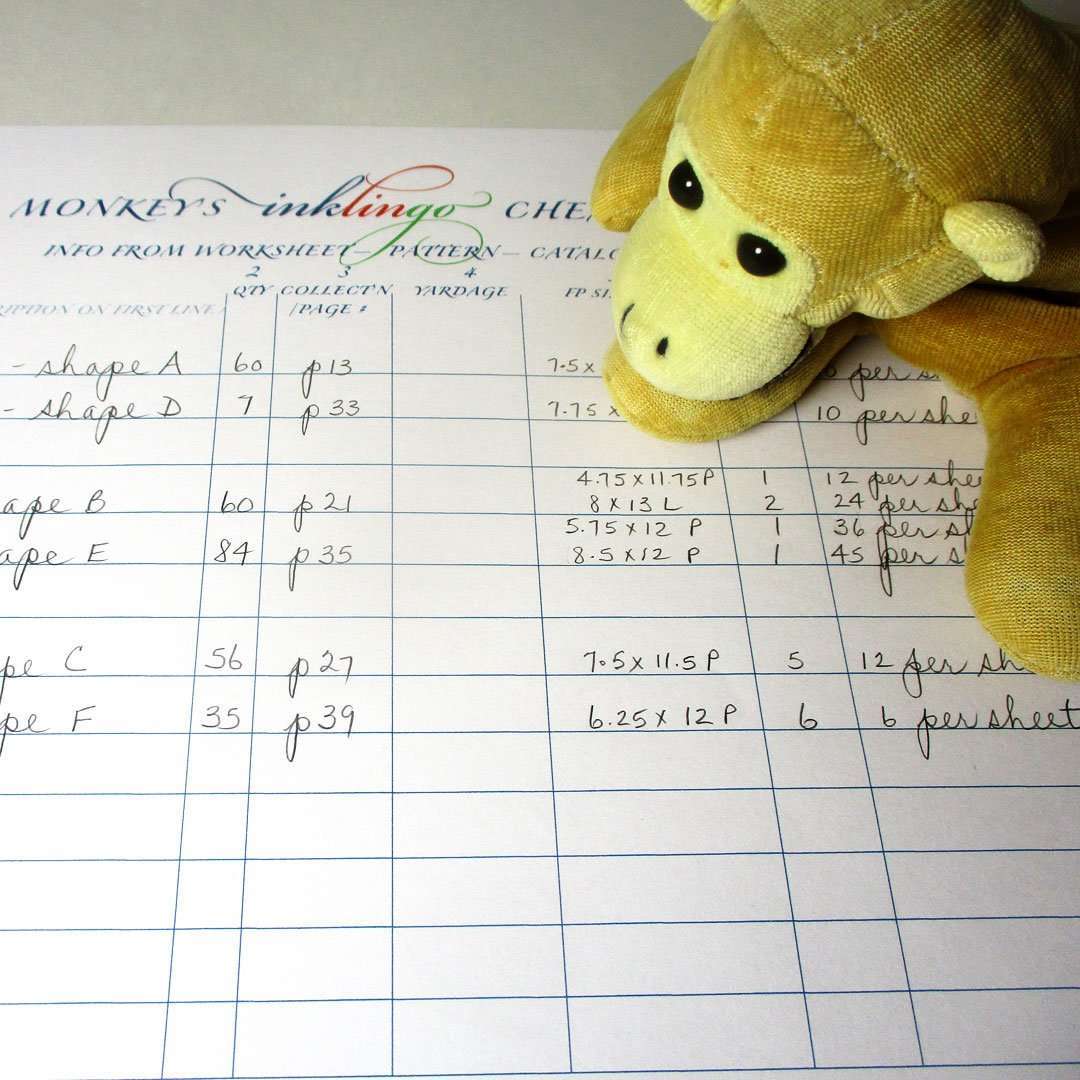 MONKEYS inklingo
INFO FROM WORKSHEET — PATTERN — CATALO
2 3 4
QTY COLLECT'N YARDAGE FP SI
RIPTION ON FIRST LINE / PAGE #
- shape A 60 p13 7.5 x per s
- shape D 7 p33 7.75 x 10 per she
4.75 x 11.75 P 1 12 per shee
ape B 60 p21 8 x 13 L 2 24 per sh
5.75 x 12 P 1 36 per s
ape E 84 p35 8.5 x 12 P 1 45 per s
pe C 56 p27 7.5 x 11.5 P 5 12 per sh
pe F 35 p39 6.25 x 12 P 6 6 per sheet